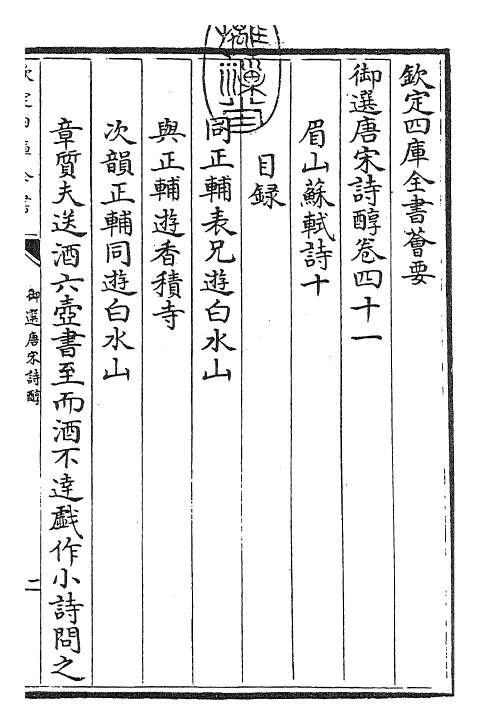 欽定四庫全書薈要
御選唐宋詩醇卷四十一
眉山蘇軾詩十
目録
同正輔表兄遊白水山
與正輔遊香積寺
次韻正輔同遊白水山
章質夫送酒六壺書至而酒不達戲作小詩問之
御選唐宋詩醇
二